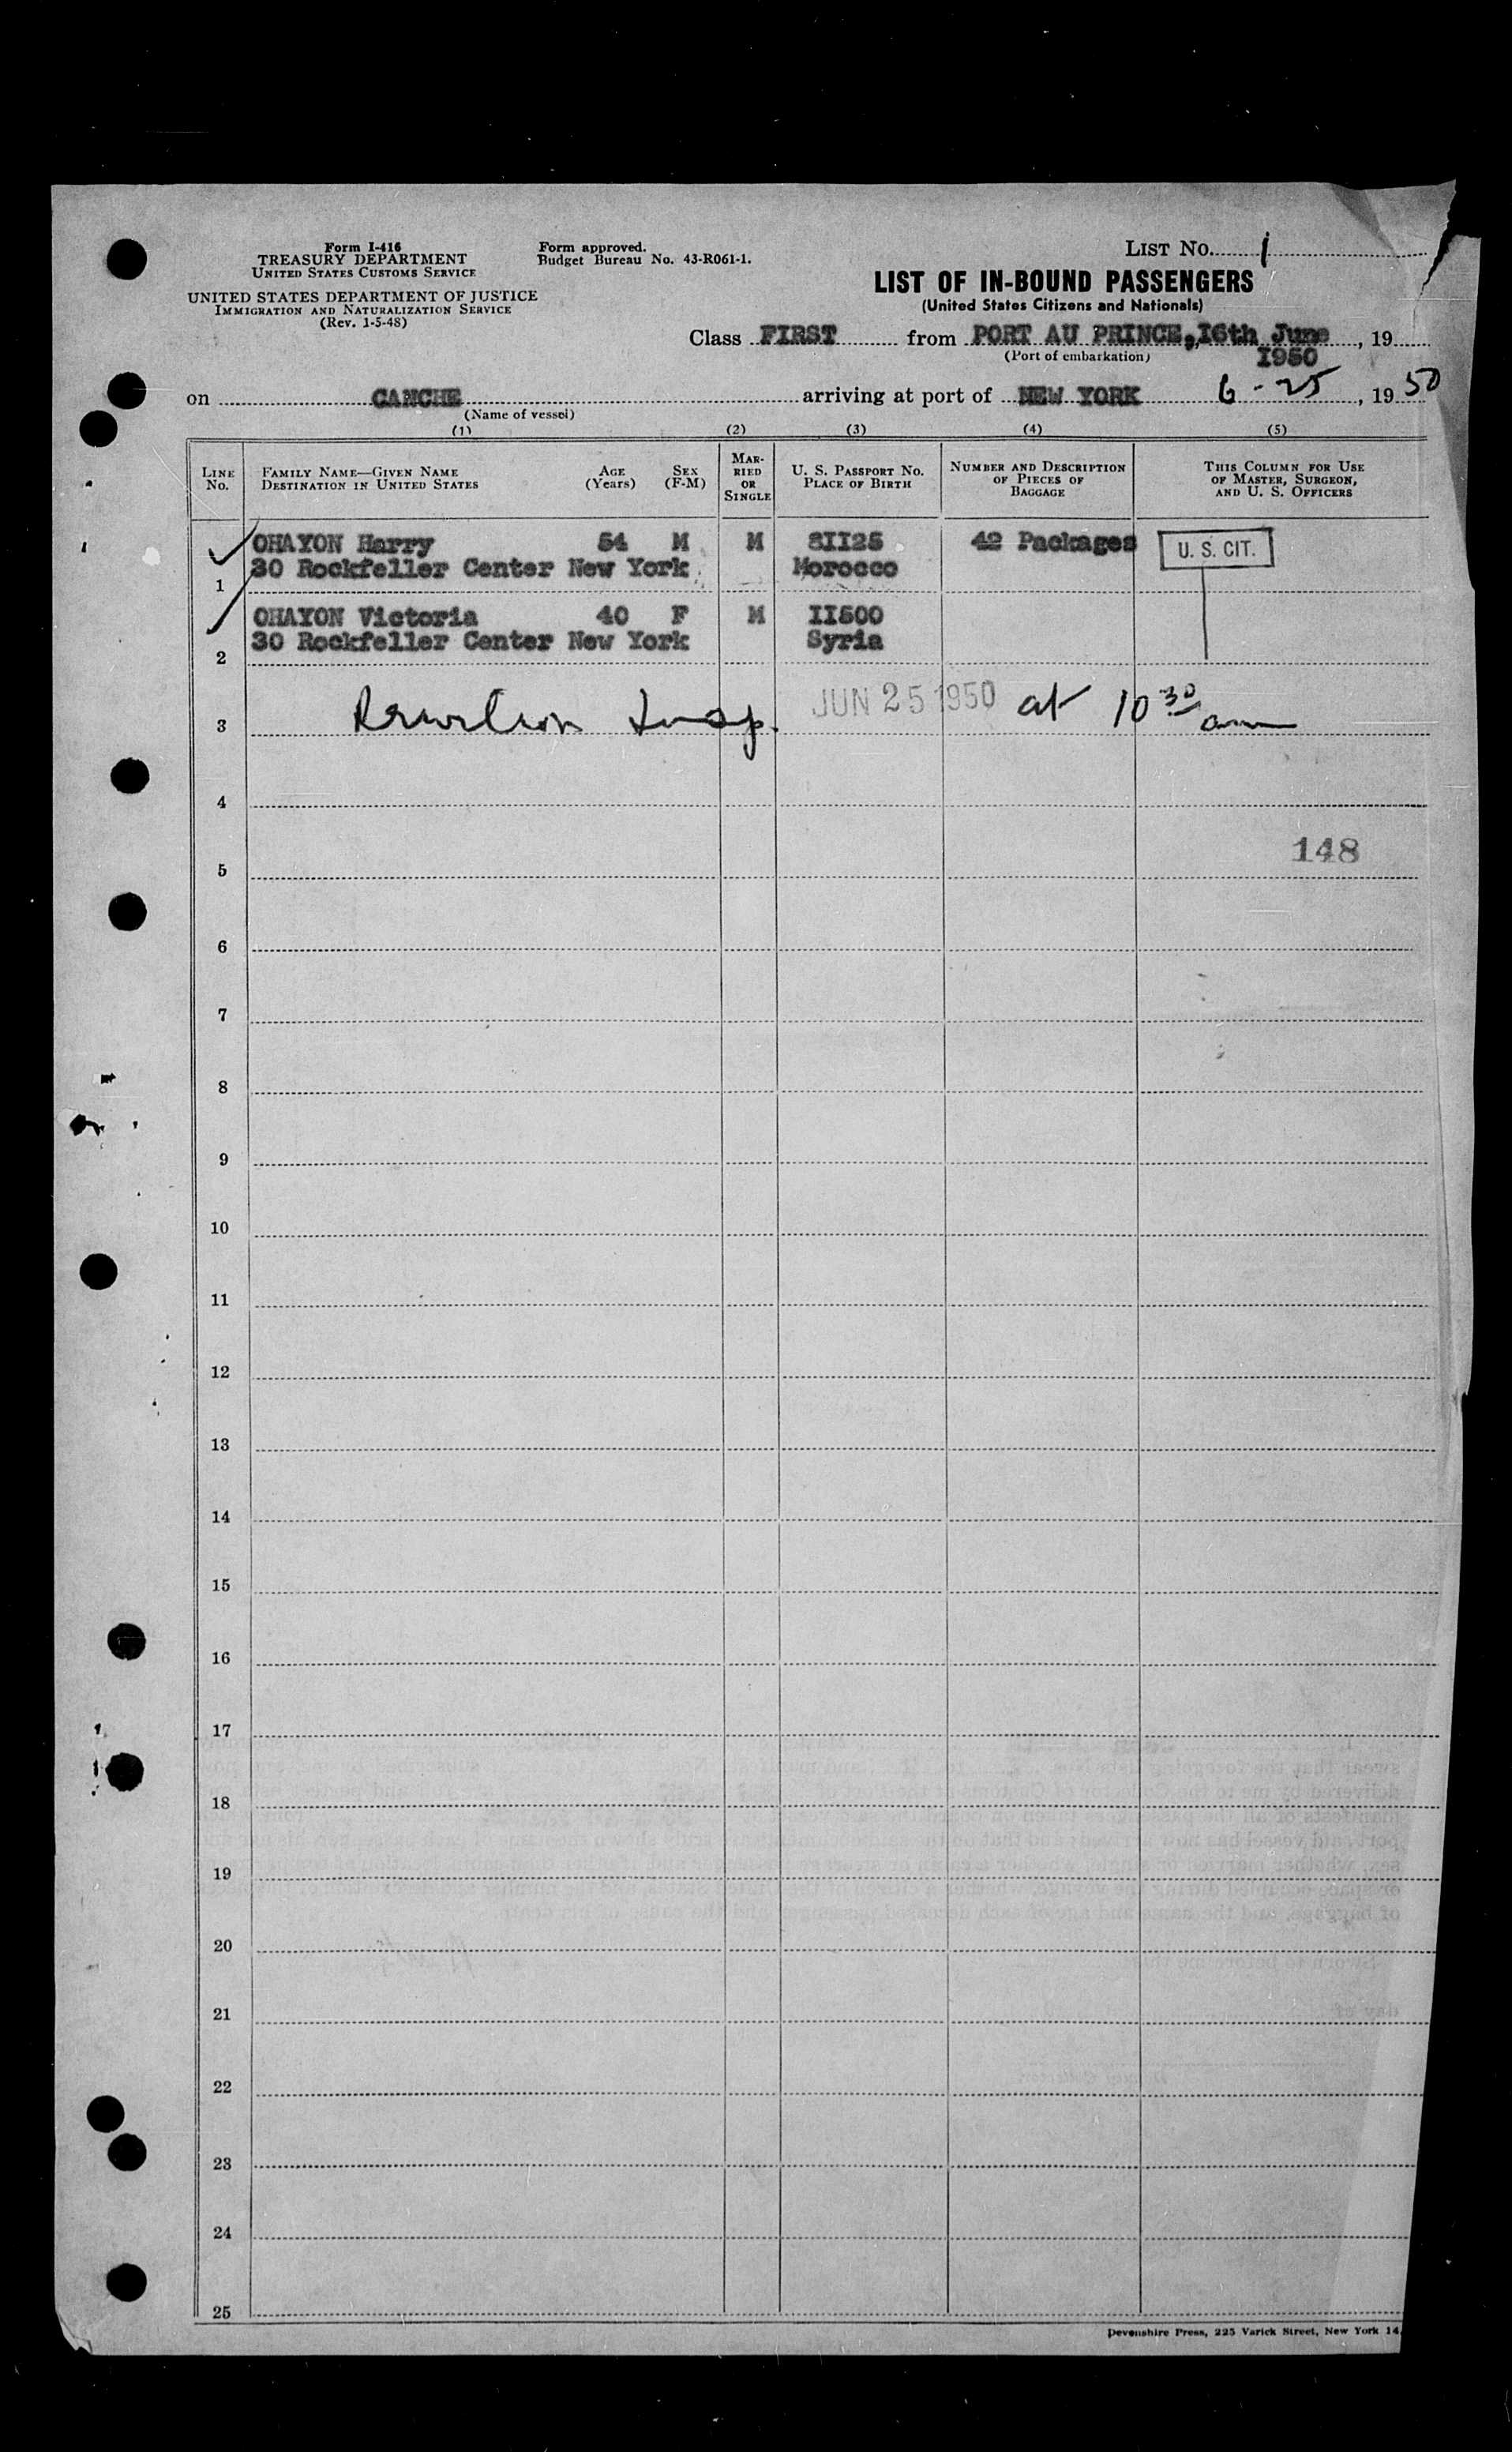 Form I-416
TREASURY DEPARTMENT
UNITED STATES CUSTOMS SERVICE
UNITED STATES DEPARTMENT OF JUSTICE
IMMIGRATION AND NATURALIZATION SERVICE
(Rev. 1-5-48)
Form approved.
Budget Bureau No. 43-R061-1.
LIST NO. 1
LIST OF IN-BOUND PASSENGERS
(United States Citizens and Nationals)
Class FIRST from PORT AU PRINCE, I6th June, 19
(Port of embarkation) I950
on CANCHE arriving at port of NEW YORK 6-25, 1950
(Name of vessel)
(1) (2) (3) (4) (5)
LINE NO. FAMILY NAME—GIVEN NAME DESTINATION IN UNITED STATES AGE (Years) SEX (F-M) MARRIED OR SINGLE U. S. PASSPORT NO. PLACE OF BIRTH NUMBER AND DESCRIPTION OF PIECES OF BAGGAGE THIS COLUMN FOR USE OF MASTER, SURGEON, AND U. S. OFFICERS
OHAYON Harry 54 M M 8II25 42 Packages U. S. CIT.
1 30 Rockfeller Center New York Morocco
OHAYON Victoria 40 F M II500
2 30 Rockfeller Center New York Syria
3 Insp. JUN 25 1950 at 10 30 am
4
148
5
6
7
8
9
10
11
12
13
14
15
16
17
18
19
20
21
22
23
24
25
Devonshire Press, 225 Varick Street, New York 14